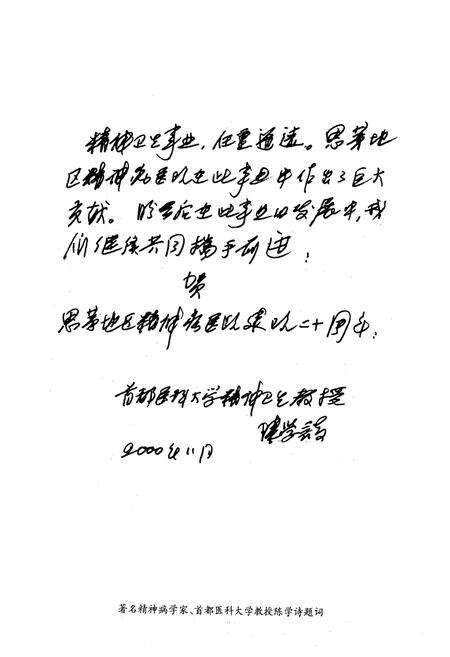 精神卫生事业，任重道远。思茅地
区精神病医院在此事业中作出了巨大
贡献。盼今后在此事业的发展中，我
们继续共同携手前进！
贺
思茅地区精神病医院建院二十周年！
首都医科大学精神卫生教授
陈学诗
2000年11月
著名精神病学家、首都医科大学教授陈学诗题词